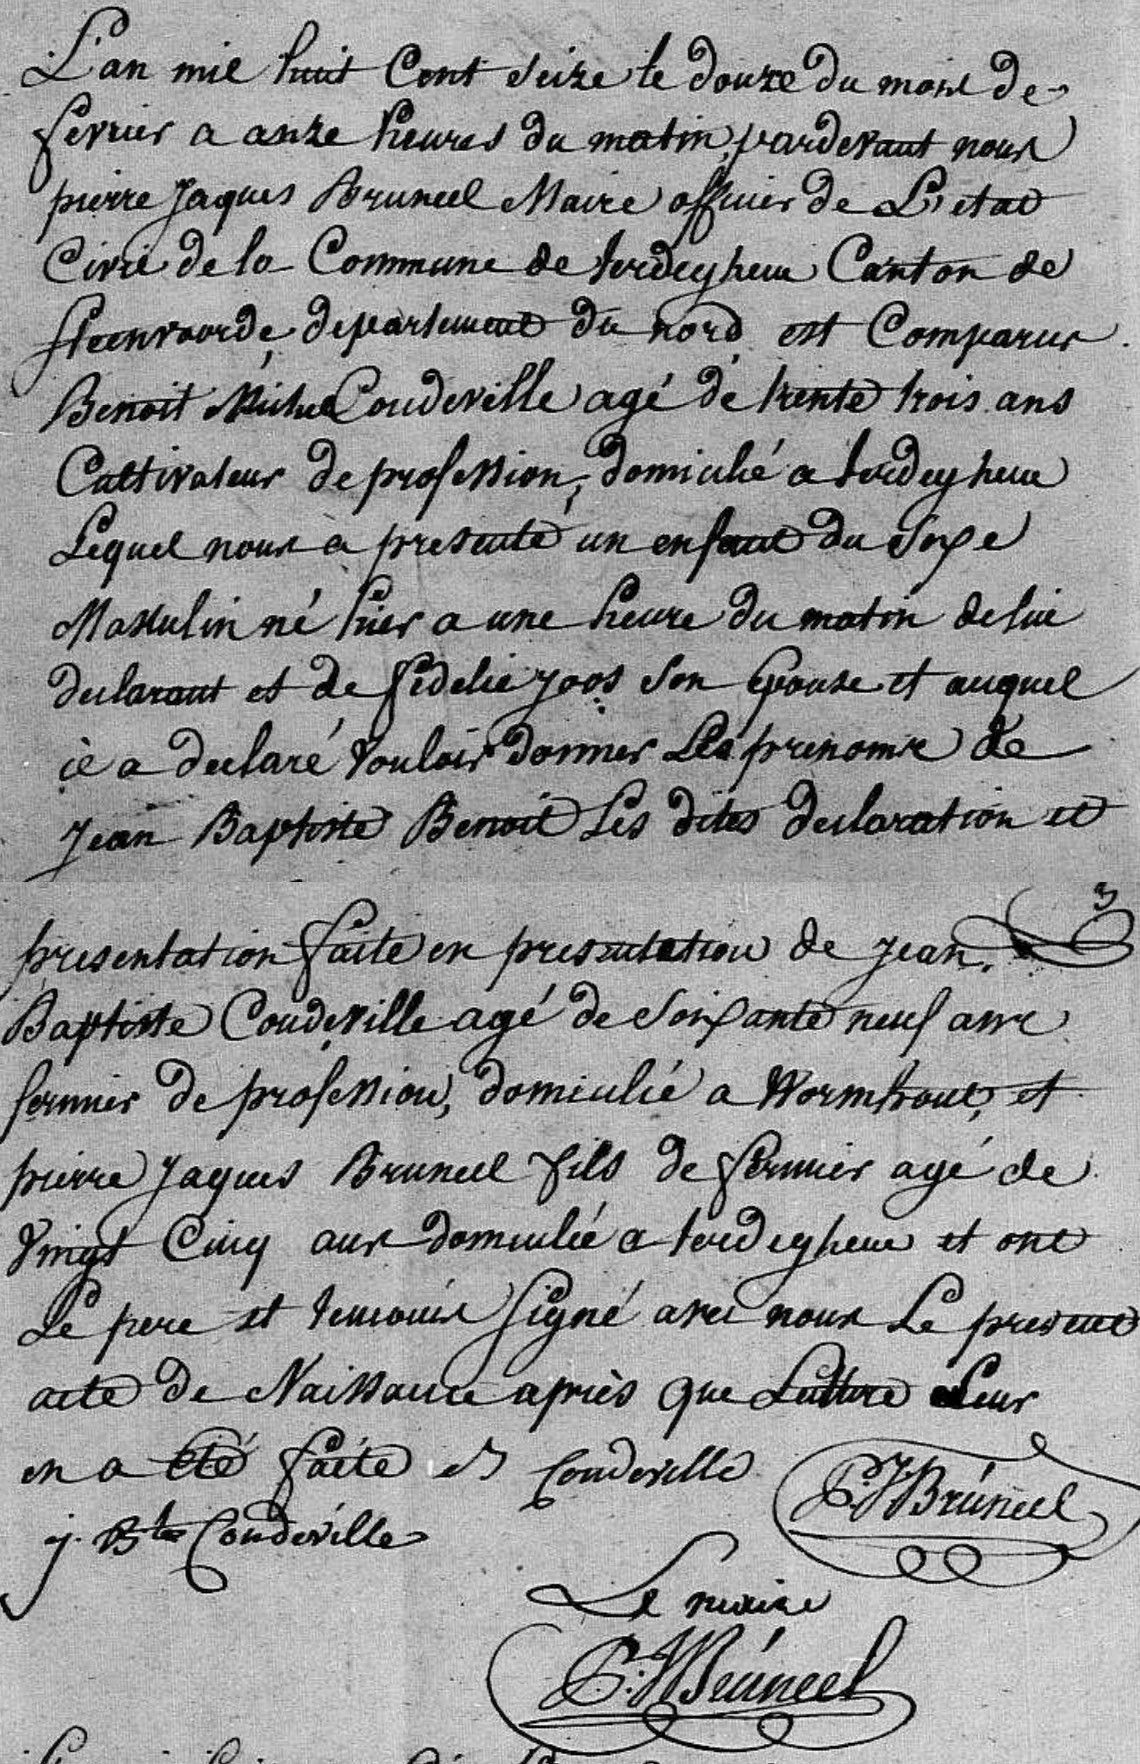 L'an mil huit Cent Seize le douze du mois de
fevrier a onze heures du matin, pardevant nous
pierre Jaques Bruneel Maire officier de L'etat
Civil de la Commune de terdeghem Canton de
Steenvoorde departement du nord est Comparus
Benoit Michel Coudeville agé de trente trois ans
Cultivateur de profession, domicilié a terdeghem
Lequel nous a presenté un enfant du Sexe
Masculin né hier a une heure du matin de lui
declarant et de fidelie Joos Son Epouse et auquel
il a declaré Vouloir donner Les prenoms de
Jean Baptiste Benoit Les dites declaration et
3
presentation faite en presentation de Jean
Baptiste Coudeville agé de Soixante neuf ans
fermier de profession, domicilié a Wormhout, et
pierre Jaques Bruneel fils de fermier agé de
Vingt Cinq ans domicilié a terdeghem et ont
Le pere et temoins Signé avec nous Le present
acte de Naissance après que Lecture Leur
en a eté faite B Coudeville P. J Bruneel
j. Bte Coudeville
Le maire
P. J Bruneel